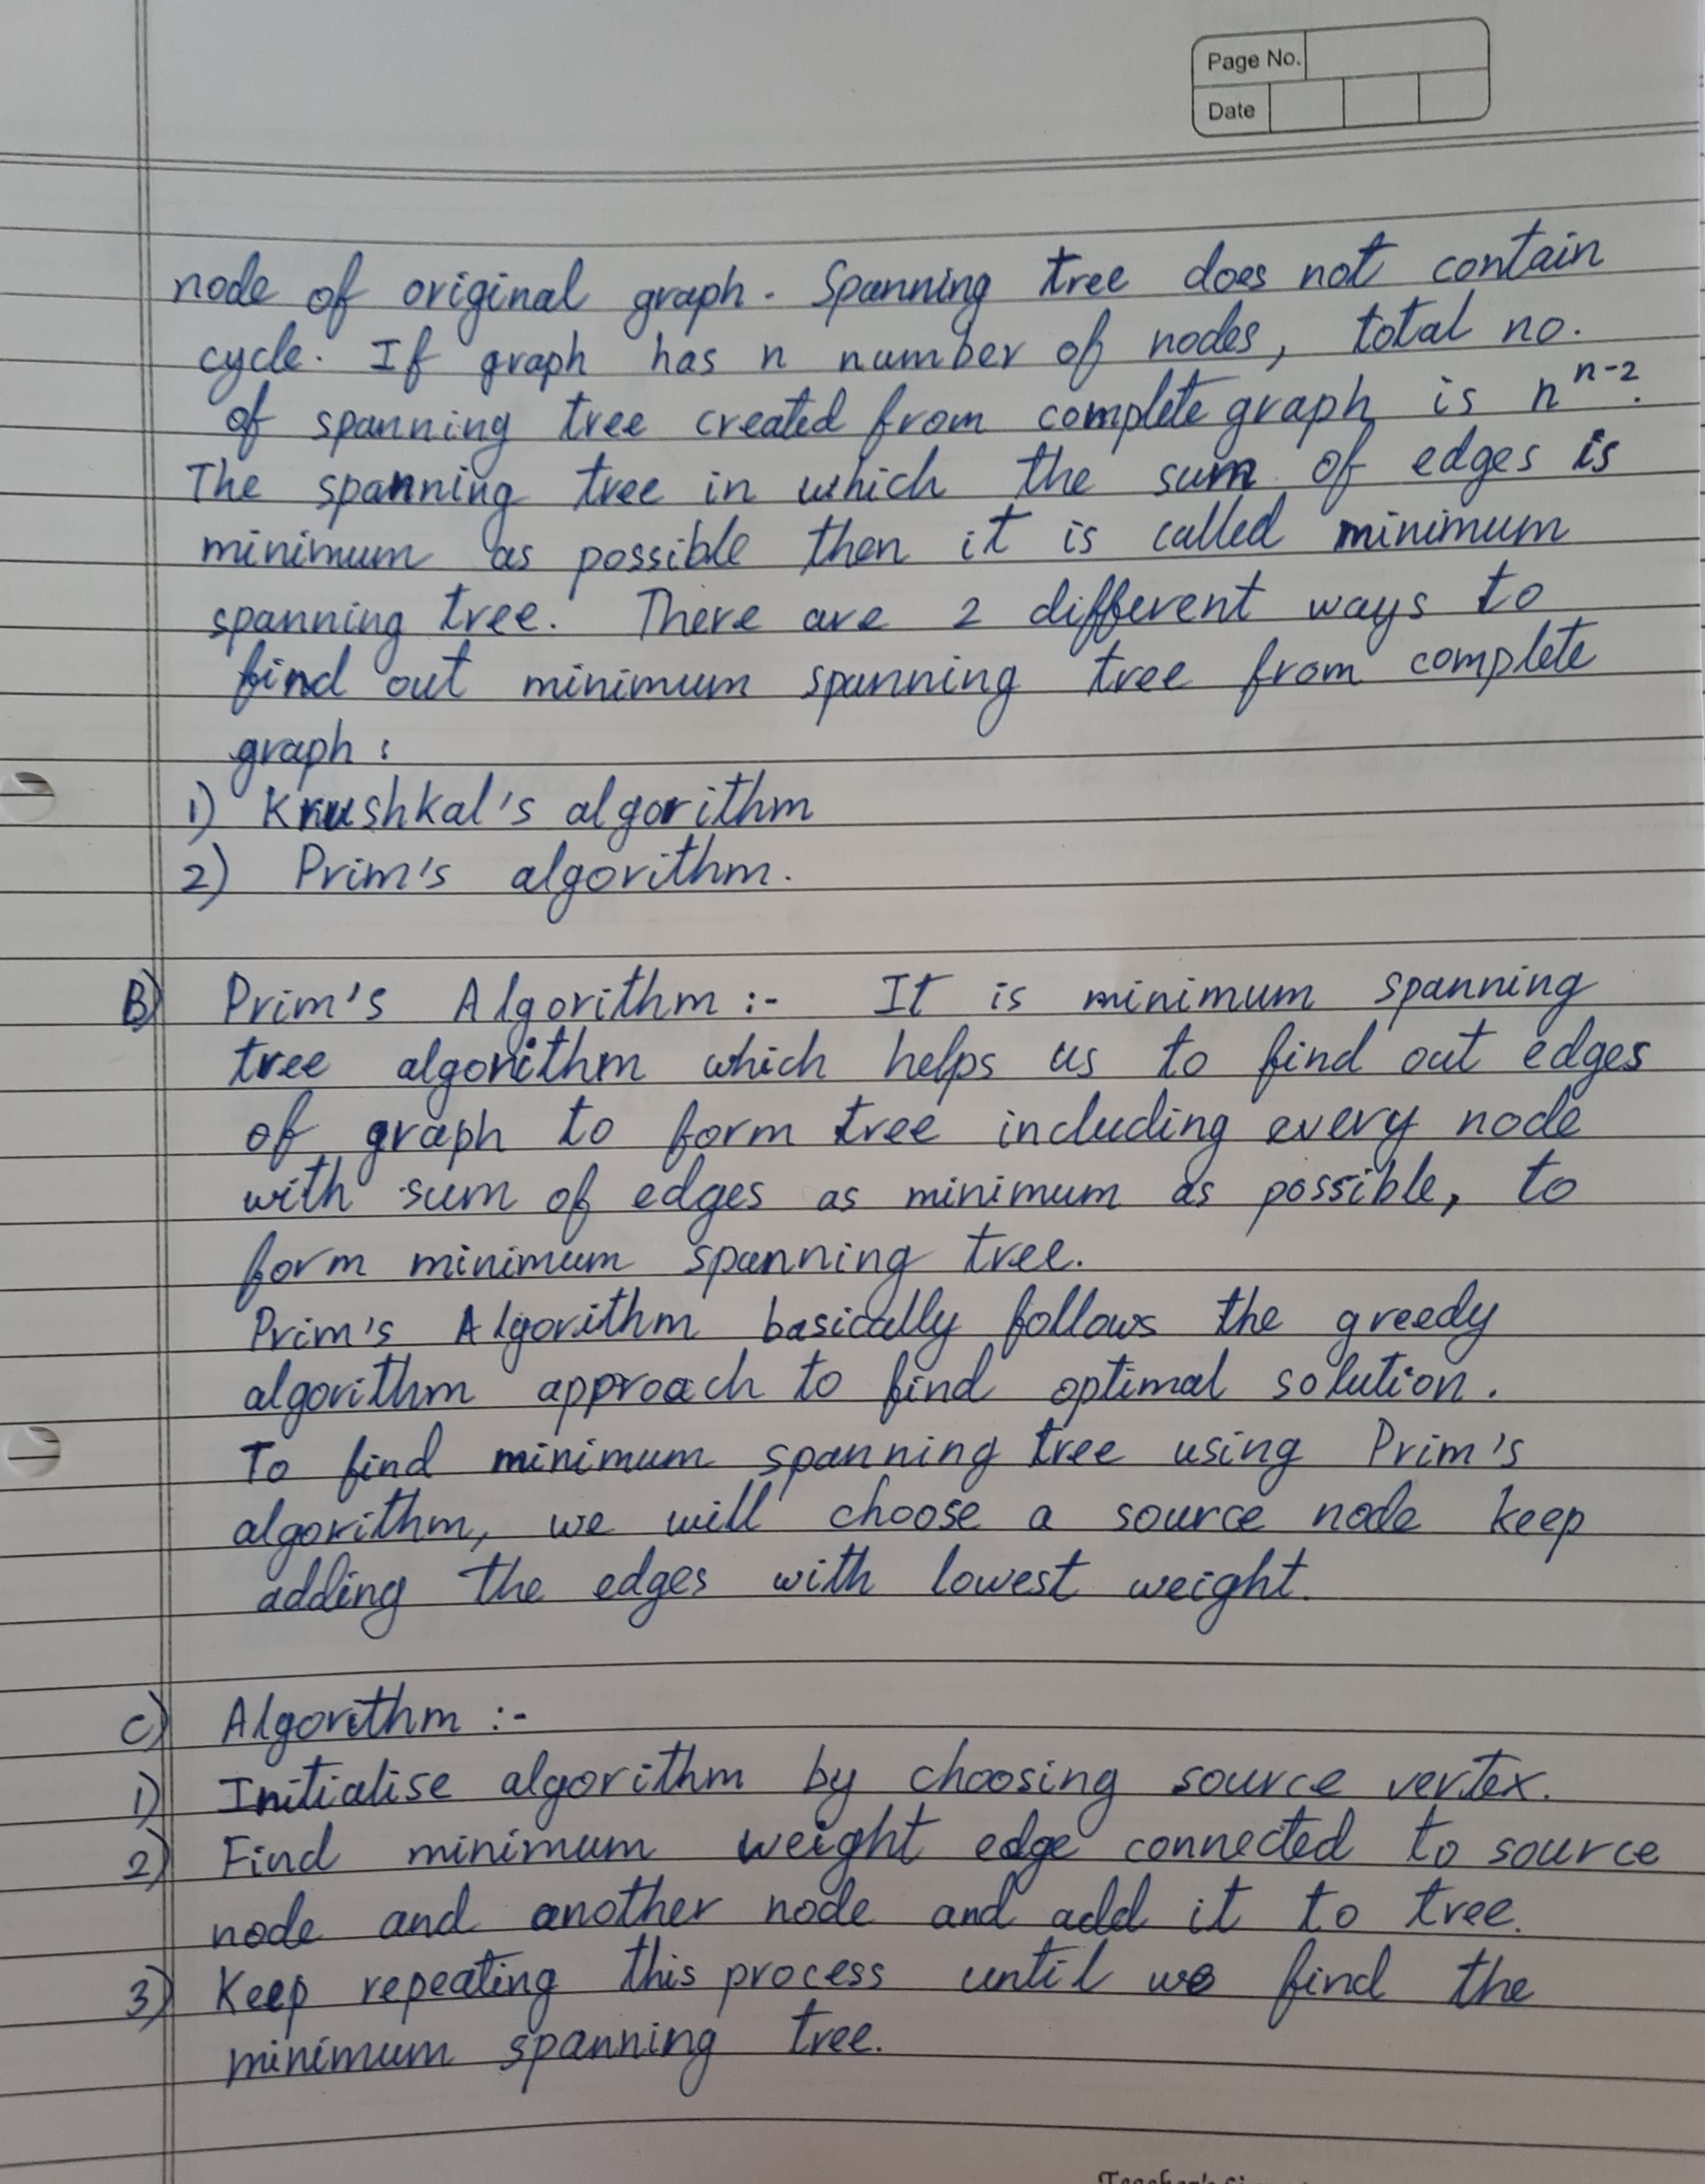 Page No.
Date
node of original graph. Spanning tree does not contain
cycle. If graph has n number of nodes, total no.
of spanning tree created from complete graph is n^n-2.
The spanning tree in which the sum of edges is
minimum as possible then it is called minimum
spanning tree. There are 2 different ways to
find out minimum spanning tree from complete
graph :
1) Krushkal's algorithm
2) Prim's algorithm.
B) Prim's Algorithm :- It is minimum spanning
tree algorithm which helps us to find out edges
of graph to form tree including every node
with sum of edges as minimum as possible, to
form minimum spanning tree.
Prim's Algorithm basically follows the greedy
algorithm approach to find optimal solution.
To find minimum spanning tree using Prim's
algorithm, we will choose a source node keep
adding the edges with lowest weight.
C) Algorithm :-
1) Initialise algorithm by choosing source vertex.
2) Find minimum weight edge connected to source
node and another node and add it to tree.
3) Keep repeating this process until we find the
minimum spanning tree.